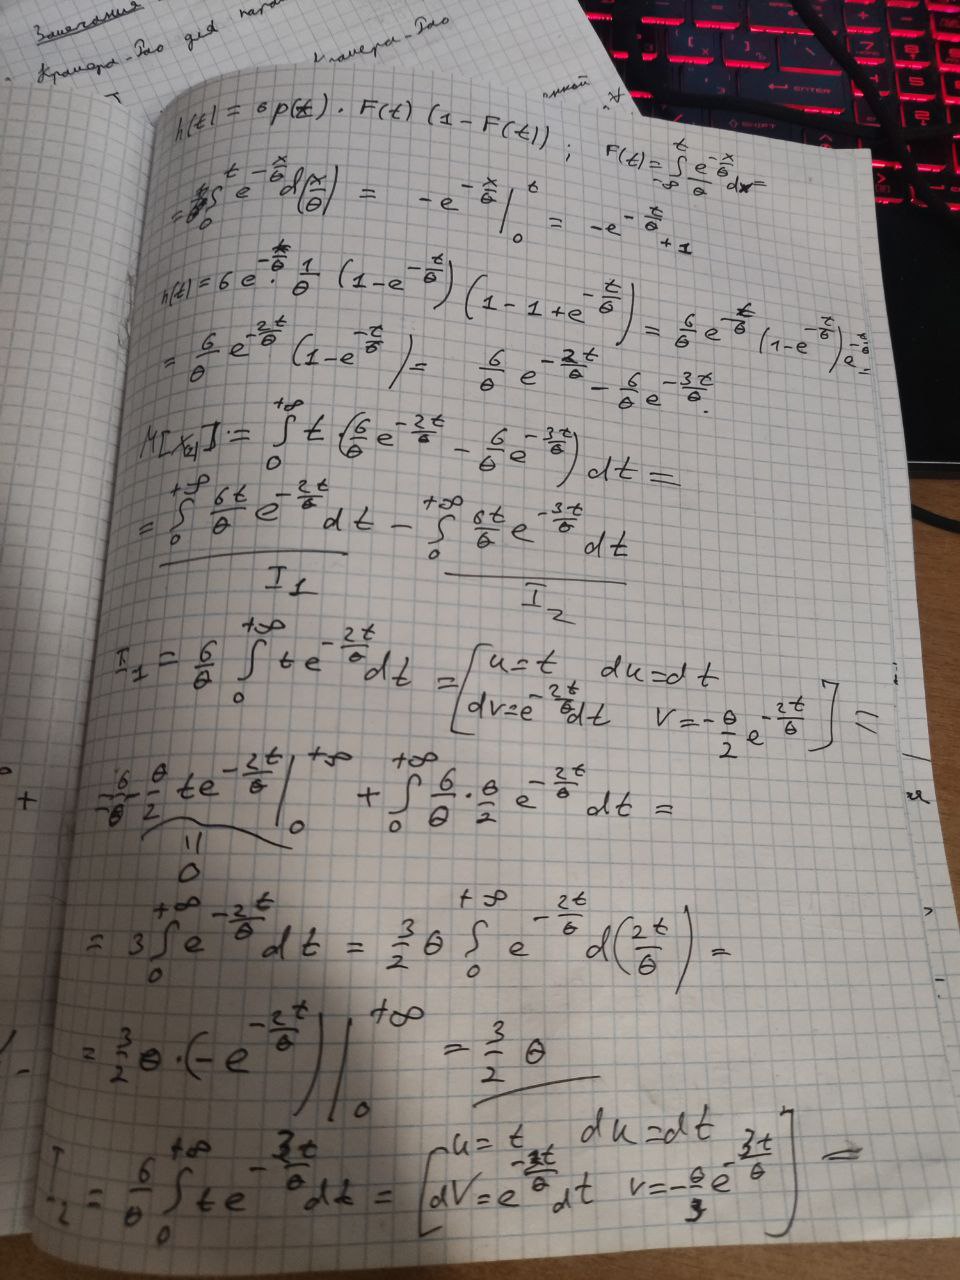 Замечания
Крамера-Рао для
Крамера-Рао
h(t) = 6p(t) · F(t) (1 - F(t)) ; F(t) = ∫_{-∞}^{t} e^{-x/θ}/θ dx =
= ∫_0^t e^{-x/θ} d(x/θ) = -e^{-x/θ} |_0^t = -e^{-t/θ} + 1
h(t) = 6e^{-t/θ} · 1/θ (1 - e^{-t/θ}) (1 - 1 + e^{-t/θ}) = 6/θ e^{-t/θ} (1 - e^{-t/θ}) e^{-t/θ} =
= 6/θ e^{-2t/θ} (1 - e^{-t/θ}) = 6/θ e^{-2t/θ} - 6/θ e^{-3t/θ}.
= ∫_0^{+∞} t (6/θ e^{-2t/θ} - 6/θ e^{-3t/θ}) dt =
= ∫_0^{+∞} 6t/θ e^{-2t/θ} dt - ∫_0^{+∞} 6t/θ e^{-3t/θ} dt
I_1 I_2
I_1 = 6/θ ∫_0^{+∞} t e^{-2t/θ} dt = [u = t du = dt
dv = e^{-2t/θ} dt v = -θ/2 e^{-2t/θ}] =
-6/θ · θ/2 t e^{-2t/θ} |_0^{+∞} + ∫_0^{+∞} 6/θ · θ/2 e^{-2t/θ} dt =
||
0
= 3 ∫_0^{+∞} e^{-2t/θ} dt = 3/2 θ ∫_0^{+∞} e^{-2t/θ} d(2t/θ) =
= 3/2 θ · (-e^{-2t/θ}) |_0^{+∞} = 3/2 θ
I_2 = 6/θ ∫_0^{+∞} t e^{-3t/θ} dt = [u = t du = dt
dV = e^{-3t/θ} dt v = -θ/3 e^{-3t/θ}] =
ENTER
SHIFT